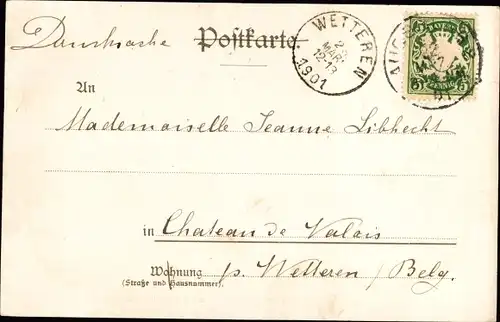 Drucksache Postkarte.
WETTEREN
MARS
12-13
1901
5 5
An
Mademoiselle Jeanne Libhecht
in Chateau de Valais
Wohnung p. Wetteren / Belg.
(Straße und Hausnummer)